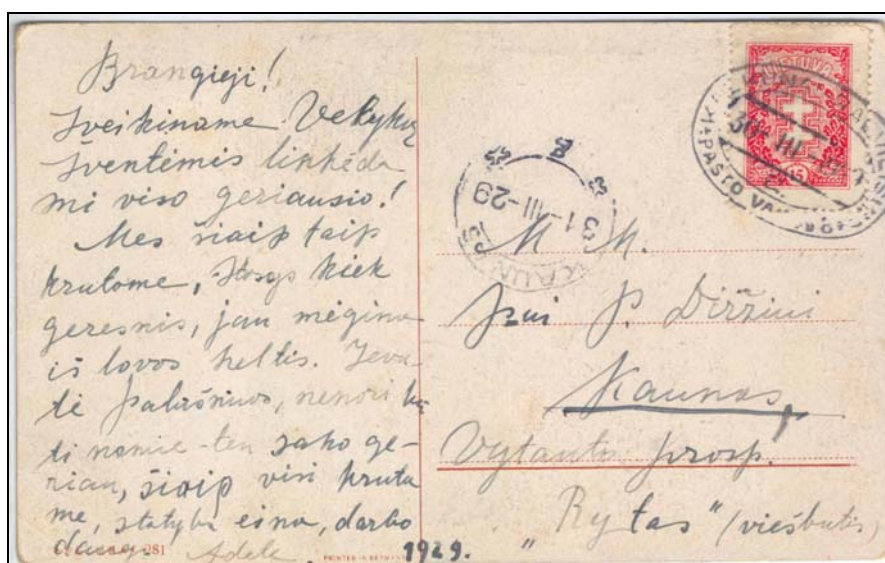 Brangieji!
Sveikiname Velykų
šventėmis linkėda
mi viso geriausio!
Mes šiaip taip
krutome, Stasys kiek
geresnis, jau mėgina
iš lovos keltis. Ieva-
tė nenori
ti namie - ten sako ge-
riau, šiaip visi kruta
me, statyba eina, darbo
daug. Adelė
281
PRINTED IN GERMANY
1929.
LIETUVA
15
PAŠTO
KAUNAS
31-III-29
M. M.
Jzui P. Diržini
Kaunas,
Vytauto prosp.
"Rytas" (viešbutis)